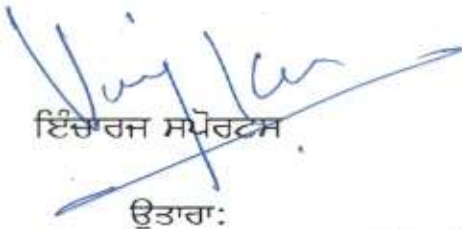 ਇੰਚਾਰਜ ਸਪੋਰਟਸ
ਉਤਾਰਾ: